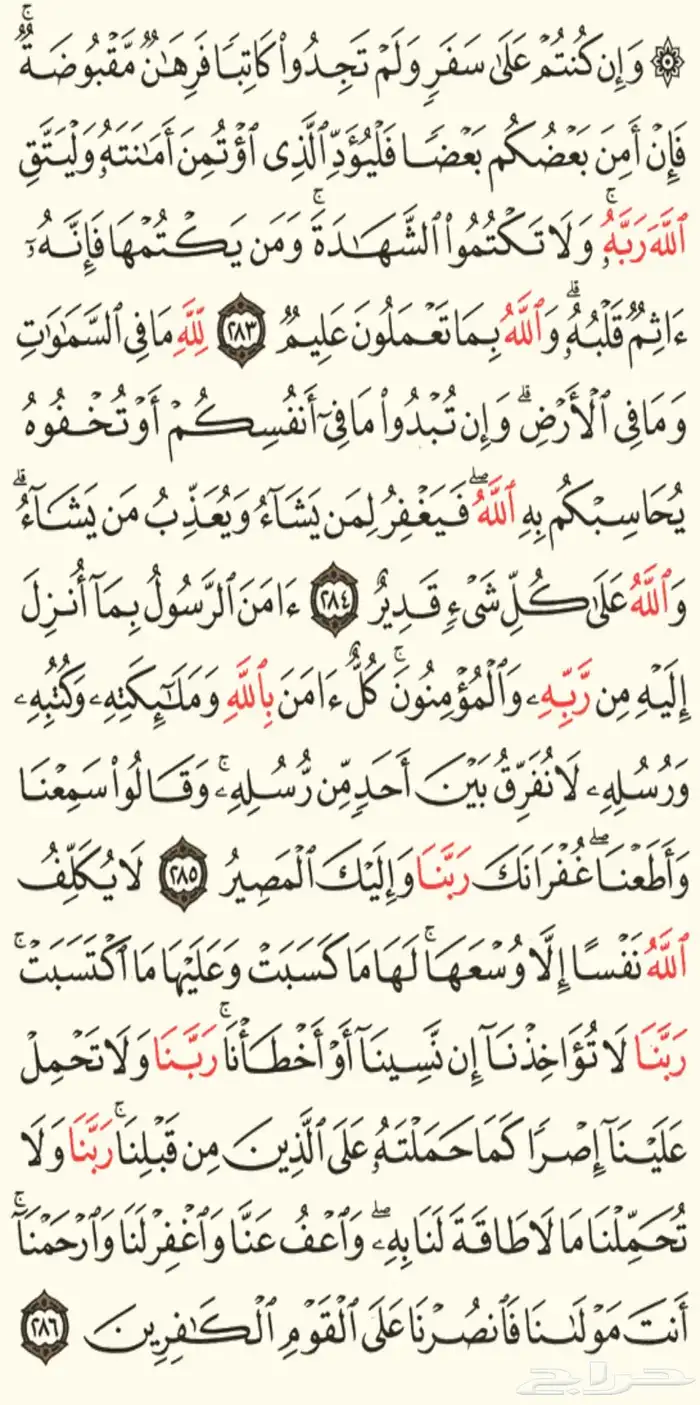 ۞ وَإِن كُنتُمْ عَلَىٰ سَفَرٍ وَلَمْ تَجِدُوا۟ كَاتِبًا فَرِهَـٰنٌ مَّقْبُوضَةٌ ۖ
فَإِنْ أَمِنَ بَعْضُكُم بَعْضًا فَلْيُؤَدِّ ٱلَّذِى ٱؤْتُمِنَ أَمَـٰنَتَهُۥ وَلْيَتَّقِ
ٱللَّهَ رَبَّهُۥ ۚ وَلَا تَكْتُمُوا۟ ٱلشَّهَـٰدَةَ ۚ وَمَن يَكْتُمْهَا فَإِنَّهُۥٓ
ءَاثِمٌ قَلْبُهُۥ ۗ وَٱللَّهُ بِمَا تَعْمَلُونَ عَلِيمٌ ٢٨٣ لِّلَّهِ مَا فِى ٱلسَّمَـٰوَٰتِ
وَمَا فِى ٱلْأَرْضِ ۗ وَإِن تُبْدُوا۟ مَا فِىٓ أَنفُسِكُمْ أَوْ تُخْفُوهُ
يُحَاسِبْكُم بِهِ ٱللَّهُ ۖ فَيَغْفِرُ لِمَن يَشَآءُ وَيُعَذِّبُ مَن يَشَآءُ ۗ
وَٱللَّهُ عَلَىٰ كُلِّ شَىْءٍ قَدِيرٌ ٢٨٤ ءَامَنَ ٱلرَّسُولُ بِمَآ أُنزِلَ
إِلَيْهِ مِن رَّبِّهِۦ وَٱلْمُؤْمِنُونَ ۚ كُلٌّ ءَامَنَ بِٱللَّهِ وَمَلَـٰٓئِكَتِهِۦ وَكُتُبِهِۦ
وَرُسُلِهِۦ لَا نُفَرِّقُ بَيْنَ أَحَدٍ مِّن رُّسُلِهِۦ ۚ وَقَالُوا۟ سَمِعْنَا
وَأَطَعْنَا ۖ غُفْرَانَكَ رَبَّنَا وَإِلَيْكَ ٱلْمَصِيرُ ٢٨٥ لَا يُكَلِّفُ
ٱللَّهُ نَفْسًا إِلَّا وُسْعَهَا ۚ لَهَا مَا كَسَبَتْ وَعَلَيْهَا مَا ٱكْتَسَبَتْ ۗ
رَبَّنَا لَا تُؤَاخِذْنَآ إِن نَّسِينَآ أَوْ أَخْطَأْنَا ۚ رَبَّنَا وَلَا تَحْمِلْ
عَلَيْنَآ إِصْرًا كَمَا حَمَلْتَهُۥ عَلَى ٱلَّذِينَ مِن قَبْلِنَا ۚ رَبَّنَا وَلَا
تُحَمِّلْنَا مَا لَا طَاقَةَ لَنَا بِهِۦ ۖ وَٱعْفُ عَنَّا وَٱغْفِرْ لَنَا وَٱرْحَمْنَآ ۚ
أَنتَ مَوْلَىٰنَا فَٱنصُرْنَا عَلَى ٱلْقَوْمِ ٱلْكَـٰفِرِينَ ٢٨٦
حراج